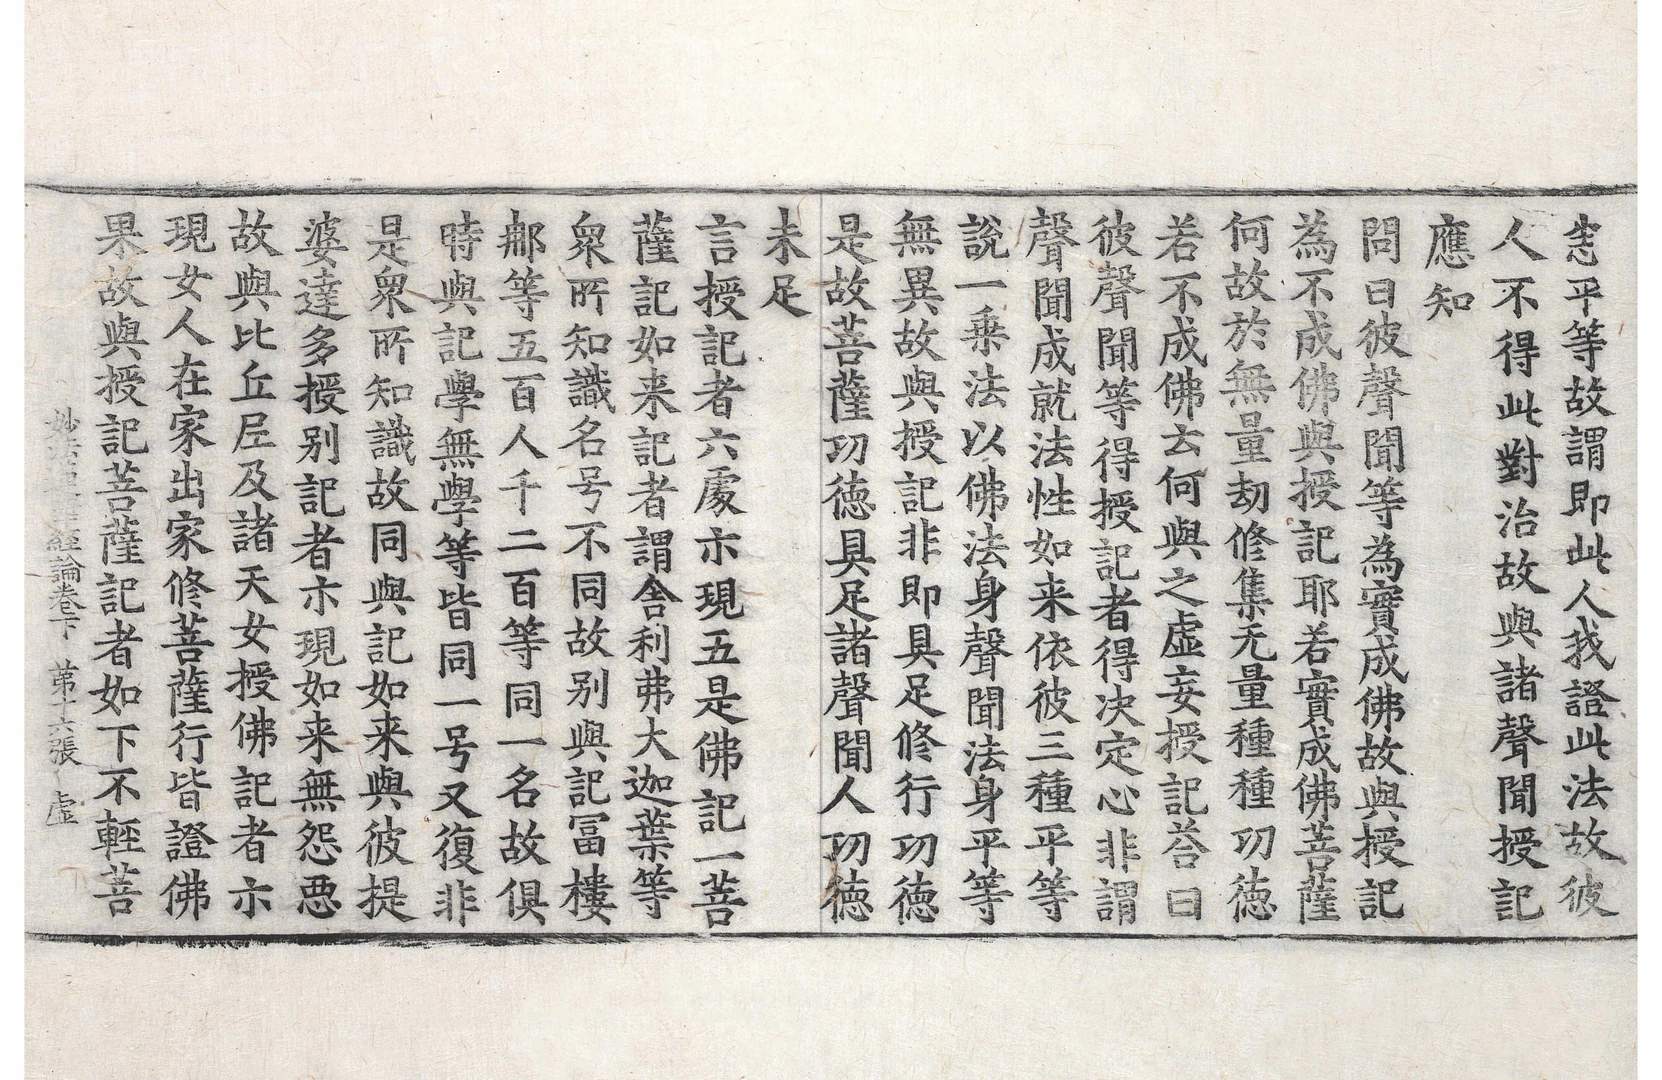 悲平等故謂即此人我證此法故彼
人不得此對治故與諸聲聞授記
應知
問曰彼聲聞等為實成佛故與授記
為不成佛與授記耶若實成佛菩薩
何故於無量劫修集无量種種功德
若不成佛云何與之虛妄授記荅曰
彼聲聞等得授記者得決定心非謂
聲聞成就法性如来依彼三種平等
說一乗法以佛法身聲聞法身平等
無異故與授記非即具足修行功德
是故菩薩功德具足諸聲聞人功德
未足
言授記者六處示現五是佛記一菩
薩記如来記者謂舍利弗大迦葉等
衆所知識名号不同故别與記冨樓
那等五百人千二百等同一名故俱
時與記學無學等皆同一号又復非
是衆所知識故同與記如来與彼提
婆達多授别記者示現如来無怨惡
故與比丘尼及諸天女授佛記者示
現女人在家出家修菩薩行皆證佛
果故與授記菩薩記者如下不輕菩
妙法蓮華經論卷下 第十六張 虛